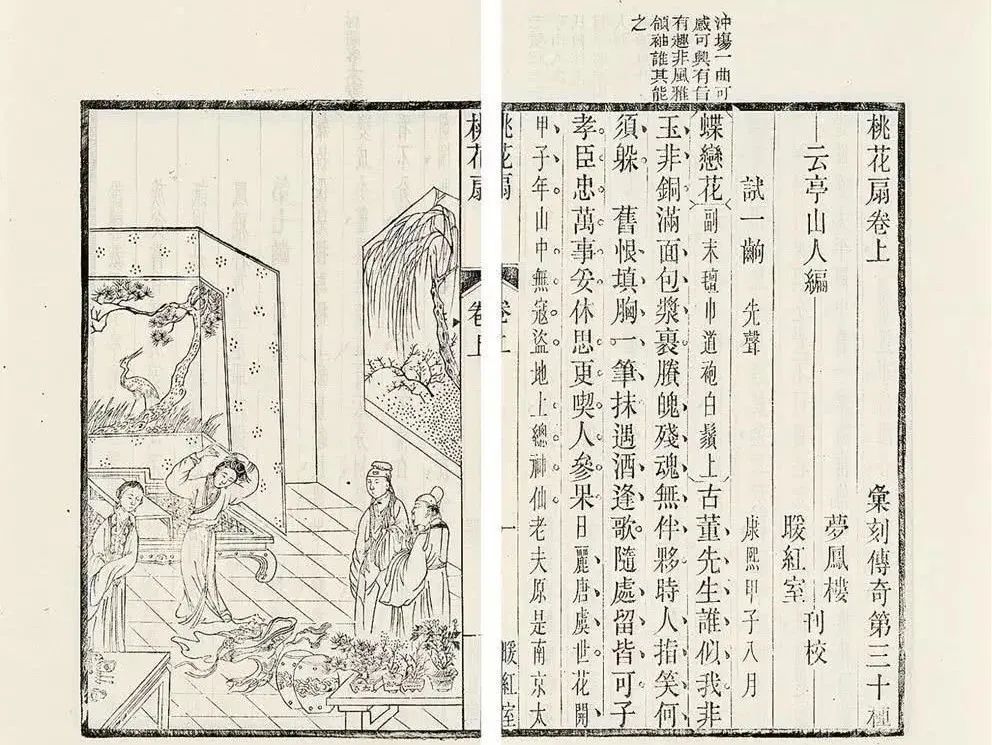 沖塲一曲可
感可興有旨
有趣非風雅
領袖誰其能
之
桃花扇卷上 彙刻傳奇第三十種
云亭山人編 夢鳳樓
暖紅室
刊校
試一齣 先聲 康熙甲子八月
蝶戀花 副末氊巾道袍白鬚上 古董先生誰似我非
玉非銅滿面包漿裹賸魄殘魂無伴夥時人指笑何
須躲 舊恨填胸一筆抹遇酒逢歌隨處留皆可子
孝臣忠萬事妥休思更喫人參果日麗唐虞世花開
甲子年山中無寇盜地上總神仙老夫原是南京太
桃花扇 卷上 一 暖紅室
桃花扇 卷上